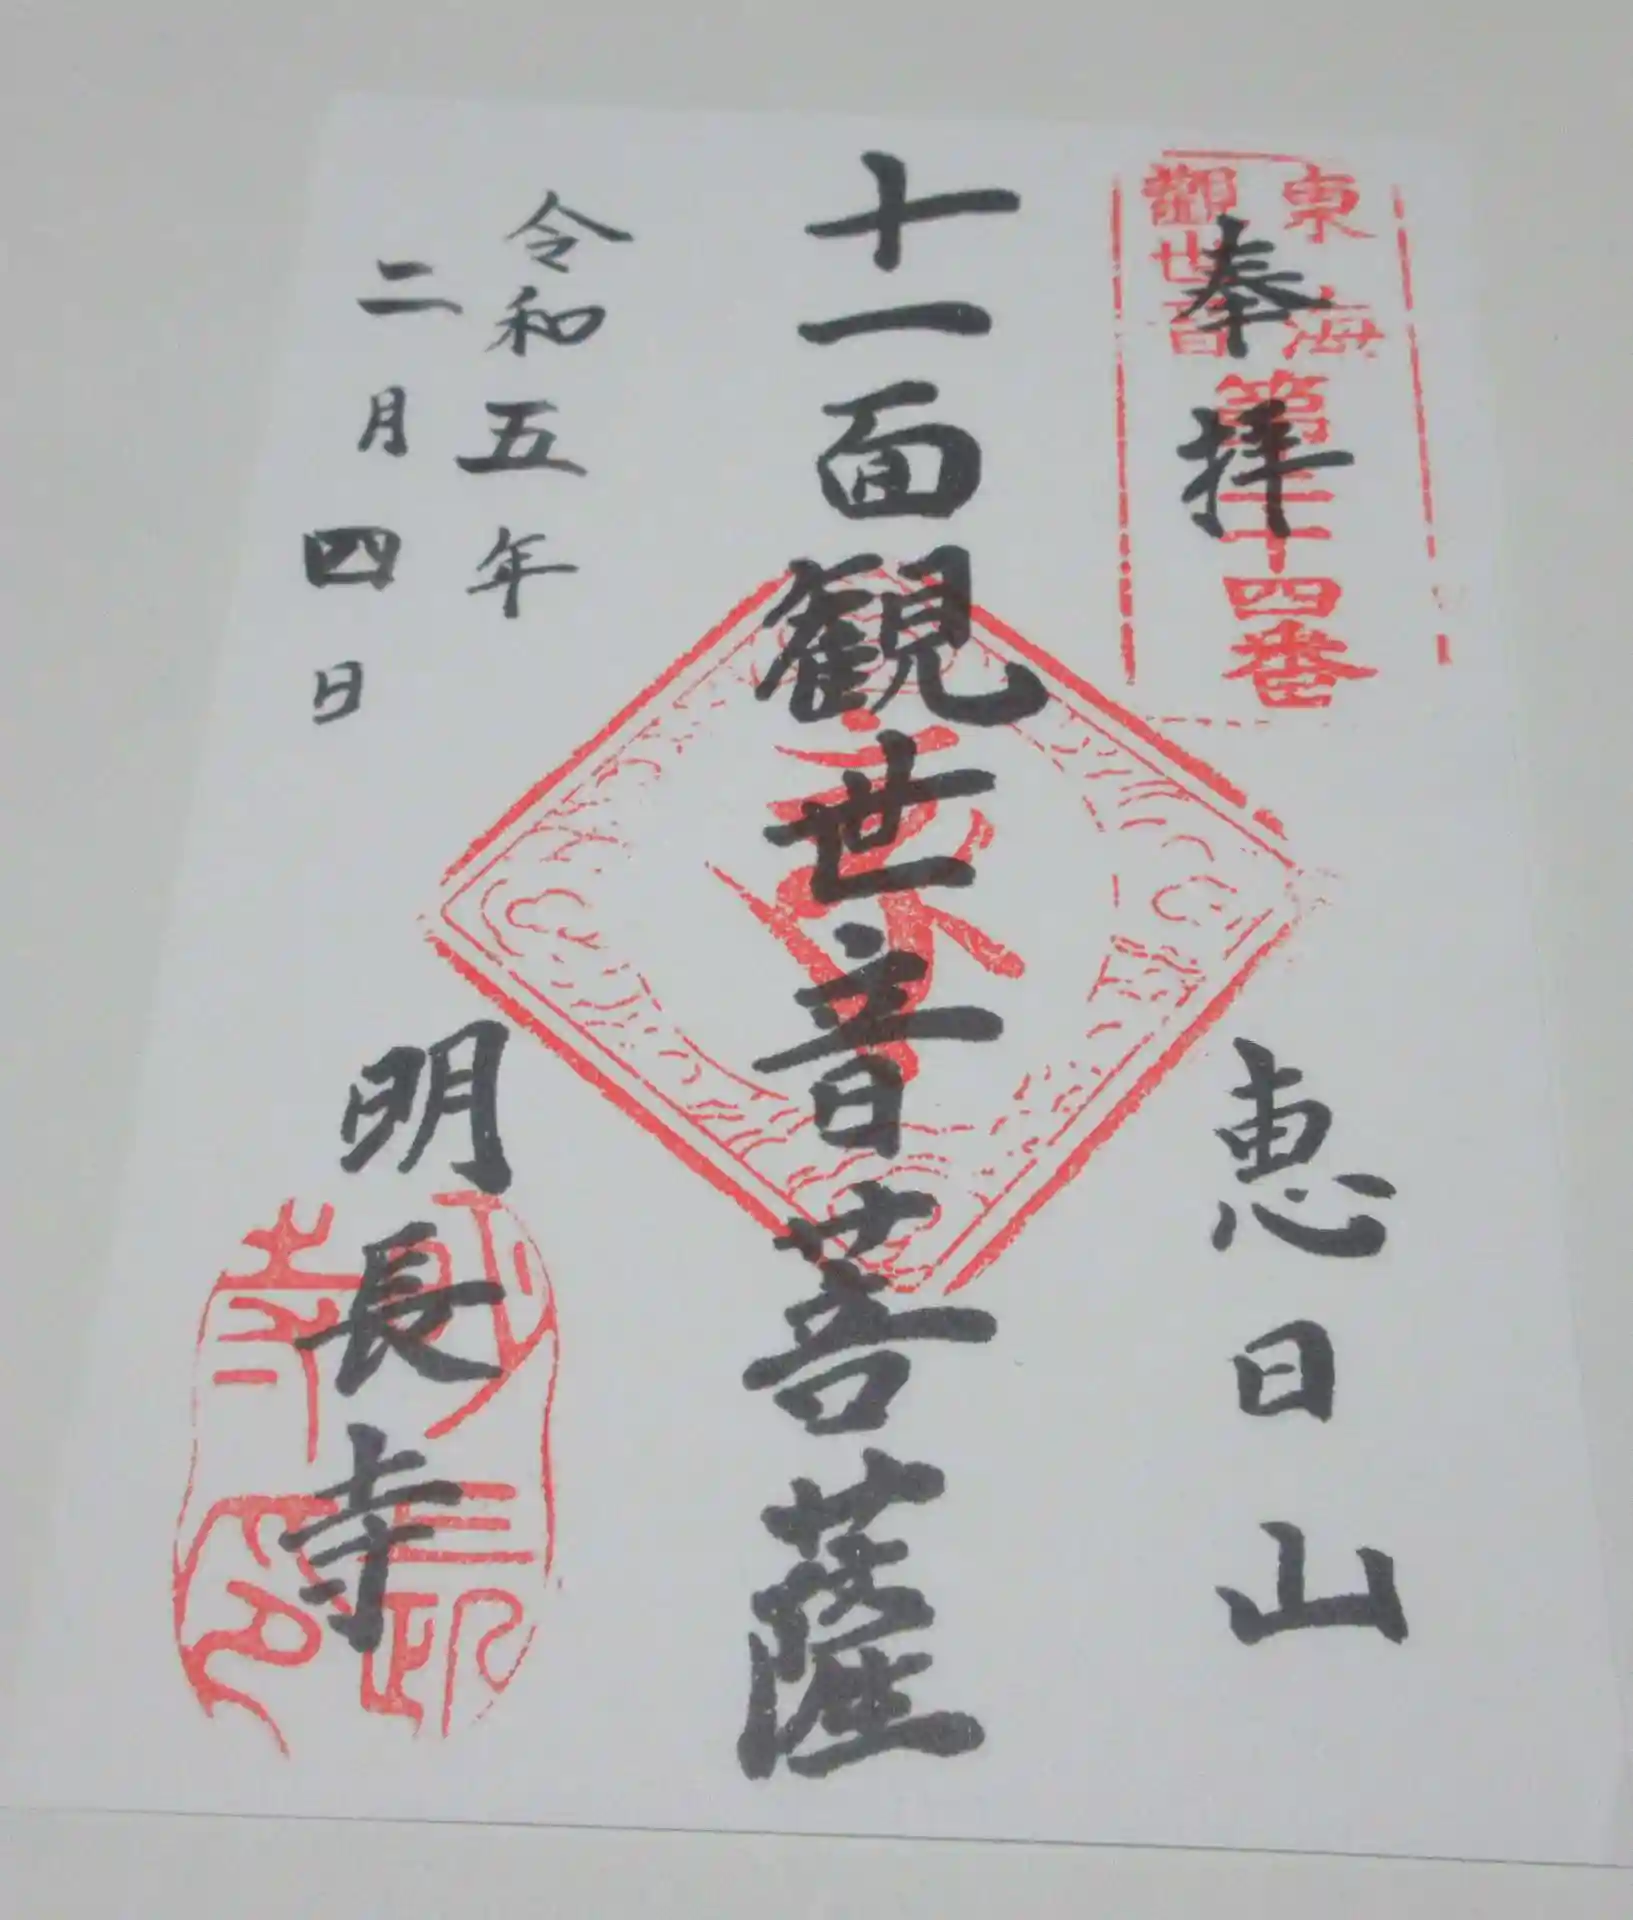 奉拝
東海
觀世音
十四番
恵日山
十一面観世音菩薩
令和五年
二月四日
明長寺